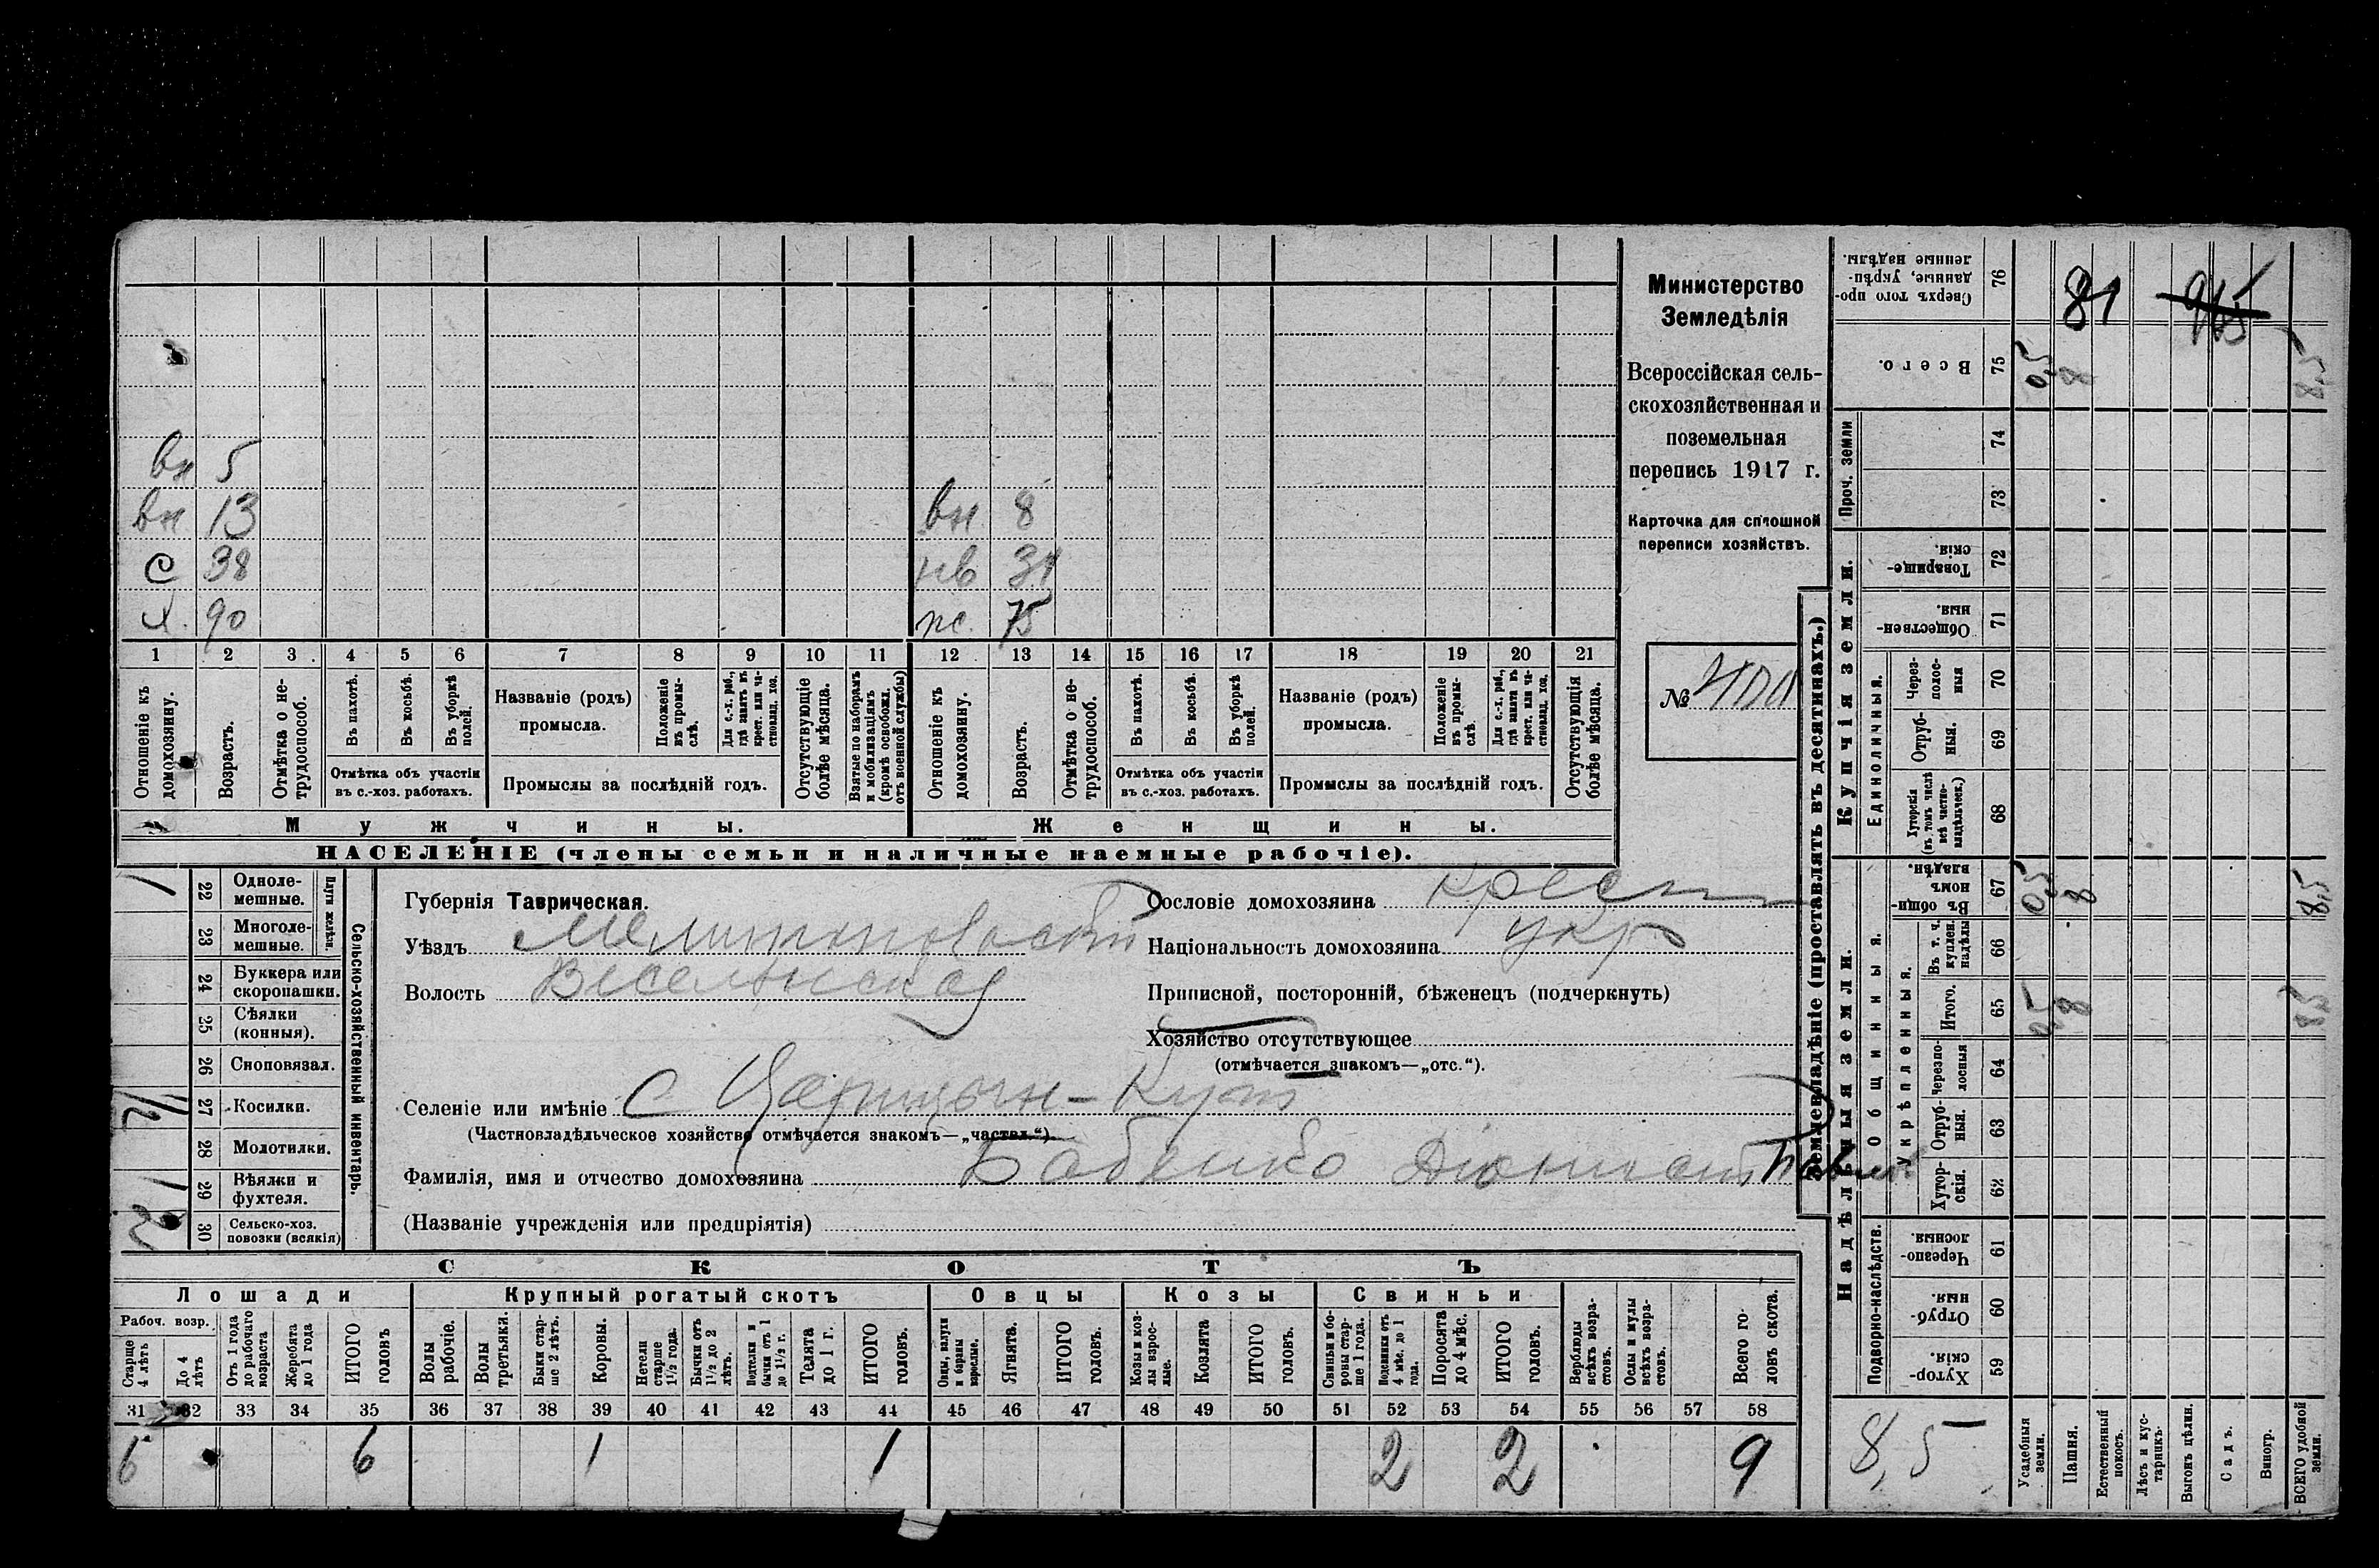 вн 5
вн 13 вн 8
с 38 нв 31
х. 90 жс. 75
1 2 3 4 5 6 7 8 9 10 11 12 13 14 15 16 17 18 19 20 21
Отношеніе къ домохозяину.
Возрастъ.
Отмѣтка о нетрудоспособ.
Въ пахотѣ.
Въ косьбѣ.
Въ уборкѣ полей.
Отмѣтка объ участіи
въ с.-хоз. работахъ.
Названіе (родъ)
промысла.
Положеніе въ промыслѣ.
Для с.-х. раб., гдѣ занятъ въ крест. или частновлад. хоз.
Промыслы за послѣдній годъ.
Отсутствующіе болѣе мѣсяца.
Взятые по наборамъ и мобилизаціямъ (кромѣ освобожд. отъ военной службы)
Отношеніе къ домохозяину.
Возрастъ.
Отмѣтка о нетрудоспособ.
Въ пахотѣ.
Въ косьбѣ.
Въ уборкѣ полей.
Отмѣтка объ участіи
въ с.-хоз. работахъ.
Названіе (родъ)
промысла.
Положеніе въ промыслѣ.
Для с.-х. раб., гдѣ занята въ крест. или частновлад. хоз.
Промыслы за послѣдній годъ.
Отсутствующія болѣе мѣсяца.
Мужчины. Женщины.
НАСЕЛЕНІЕ (члены семьи и наличные наемные рабочіе).
Министерство
Земледѣлія
Всероссійская сель-
скохозяйственная и
поземельная
перепись 1917 г.
Карточка для сплошной
переписи хозяйствъ.
№
Сельско-хозяйственный инвентарь.
Плуги желѣзн.
1 22 Одноле-
мешные.
23 Многоле-
мешные.
24 Буккера или
скоропашки.
25 Сѣялки
(конныя).
26 Сноповязал.
1/2 27 Косилки.
28 Молотилки.
1 29 Вѣялки и
фухтеля.
2 30 Сельско-хоз.
повозки (всякія)
Губернія Таврическая.
Уѣздъ Мелитопольскій
Волость Веселянская
Селеніе или имѣніе с Царицын-Кутъ
(Частновладѣльческое хозяйство отмѣчается знакомъ—„частвл.“)
Фамилія, имя и отчество домохозяина Бабенко Діонисій Павлов
(Названіе учрежденія или предпріятія)
Сословіе домохозяина крест
Національность домохозяина укр
Приписной, посторонній, бѣженецъ (подчеркнуть)
Хозяйство отсутствующее
(отмѣчается знакомъ—„отс.“).
СКОТЪ
Лошади Крупный рогатый скотъ Овцы Козы Свиньи
Рабоч. возр.
Старше 4 лѣтъ
До 4 лѣтъ
Отъ 1 года до рабочаго возраста
Жеребята до 1 года
ИТОГО головъ
Волы рабочіе.
Волы третьяки.
Быки старше 2 лѣтъ.
Коровы.
Нетели старше 1½ года.
Бычки отъ 1½ до 2 лѣтъ.
Подтелки и бычки отъ 1 до 1½ г.
Телята до 1 г.
ИТОГО головъ.
Овцы, валухи и бараны взрослые.
Ягнята.
ИТОГО головъ.
Козы и козлы взрослые.
Козлята
ИТОГО головъ.
Свиньи и боровы старше 1 года.
Подсвинки отъ 4 мѣс. до 1 года.
Поросята до 4 мѣс.
ИТОГО головъ.
Верблюды всѣхъ возрастовъ.
Ослы и мулы всѣхъ возрастовъ.
Всего головъ скота.
31 32 33 34 35 36 37 38 39 40 41 42 43 44 45 46 47 48 49 50 51 52 53 54 55 56 57 58
6 6 1 1 2 2 9
Землевладѣніе (проставлять въ десятинахъ.)
Сверхъ того проданные, укрѣпленные надѣлы. 76 81 9,5
Всего. 75 0,5 8 8,5
Проч. земли 74
73
Купчія земли.
Товарищескія. 72
Общественныя. 71
Единоличныя.
Черезполосныя 70
Отрубныя. 69
Хуторскія (въ томъ числѣ всѣ частновладѣльческ.) 68
Надѣльныя земли.
Общинныя.
Въ общинномъ владѣн. 67 0,5 8 8,5
Укрѣпленныя.
Въ т. ч. куплен. надѣлы 66
Итого. 65 0,5 8 8,5
Черезполосныя 64
Отрубныя. 63
Хуторскія. 62
Подворно-наслѣдств.
Черезполосныя. 61
Отрубныя. 60
Хуторскія. 59
8,5
Усадебныя земли.
Пашня.
Естественный покосъ.
Лѣсъ и кустарникъ.
Выгонъ цѣлин.
Садъ.
Виногр.
ВСЕГО удобной земли.